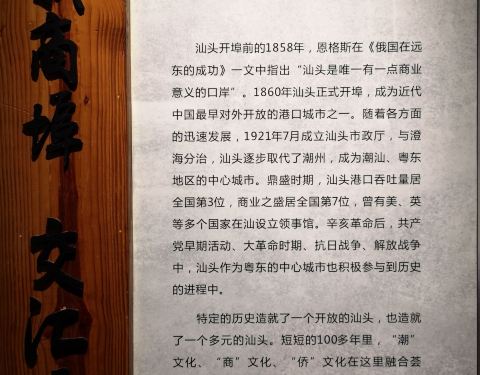 商埠
交汇
汕头开埠前的1858年，恩格斯在《俄国在远
东的成功》一文中指出“汕头是唯一有一点商业
意义的口岸”。1860年汕头正式开埠，成为近代
中国最早对外开放的港口城市之一。随着各方面
的迅速发展，1921年7月成立汕头市政厅，与澄
海分治，汕头逐步取代了潮州，成为潮汕、粤东
地区的中心城市。鼎盛时期，汕头港口吞吐量居
全国第3位，商业之盛居全国第7位，曾有美、英
等多个国家在汕设立领事馆。辛亥革命后，共产
党早期活动、大革命时期、抗日战争、解放战争
中，汕头作为粤东的中心城市也积极参与到历史
的进程中。
特定的历史造就了一个开放的汕头，也造就
了一个多元的汕头。短短的100多年里，“潮”
文化、“商”文化、“侨”文化在这里融合荟